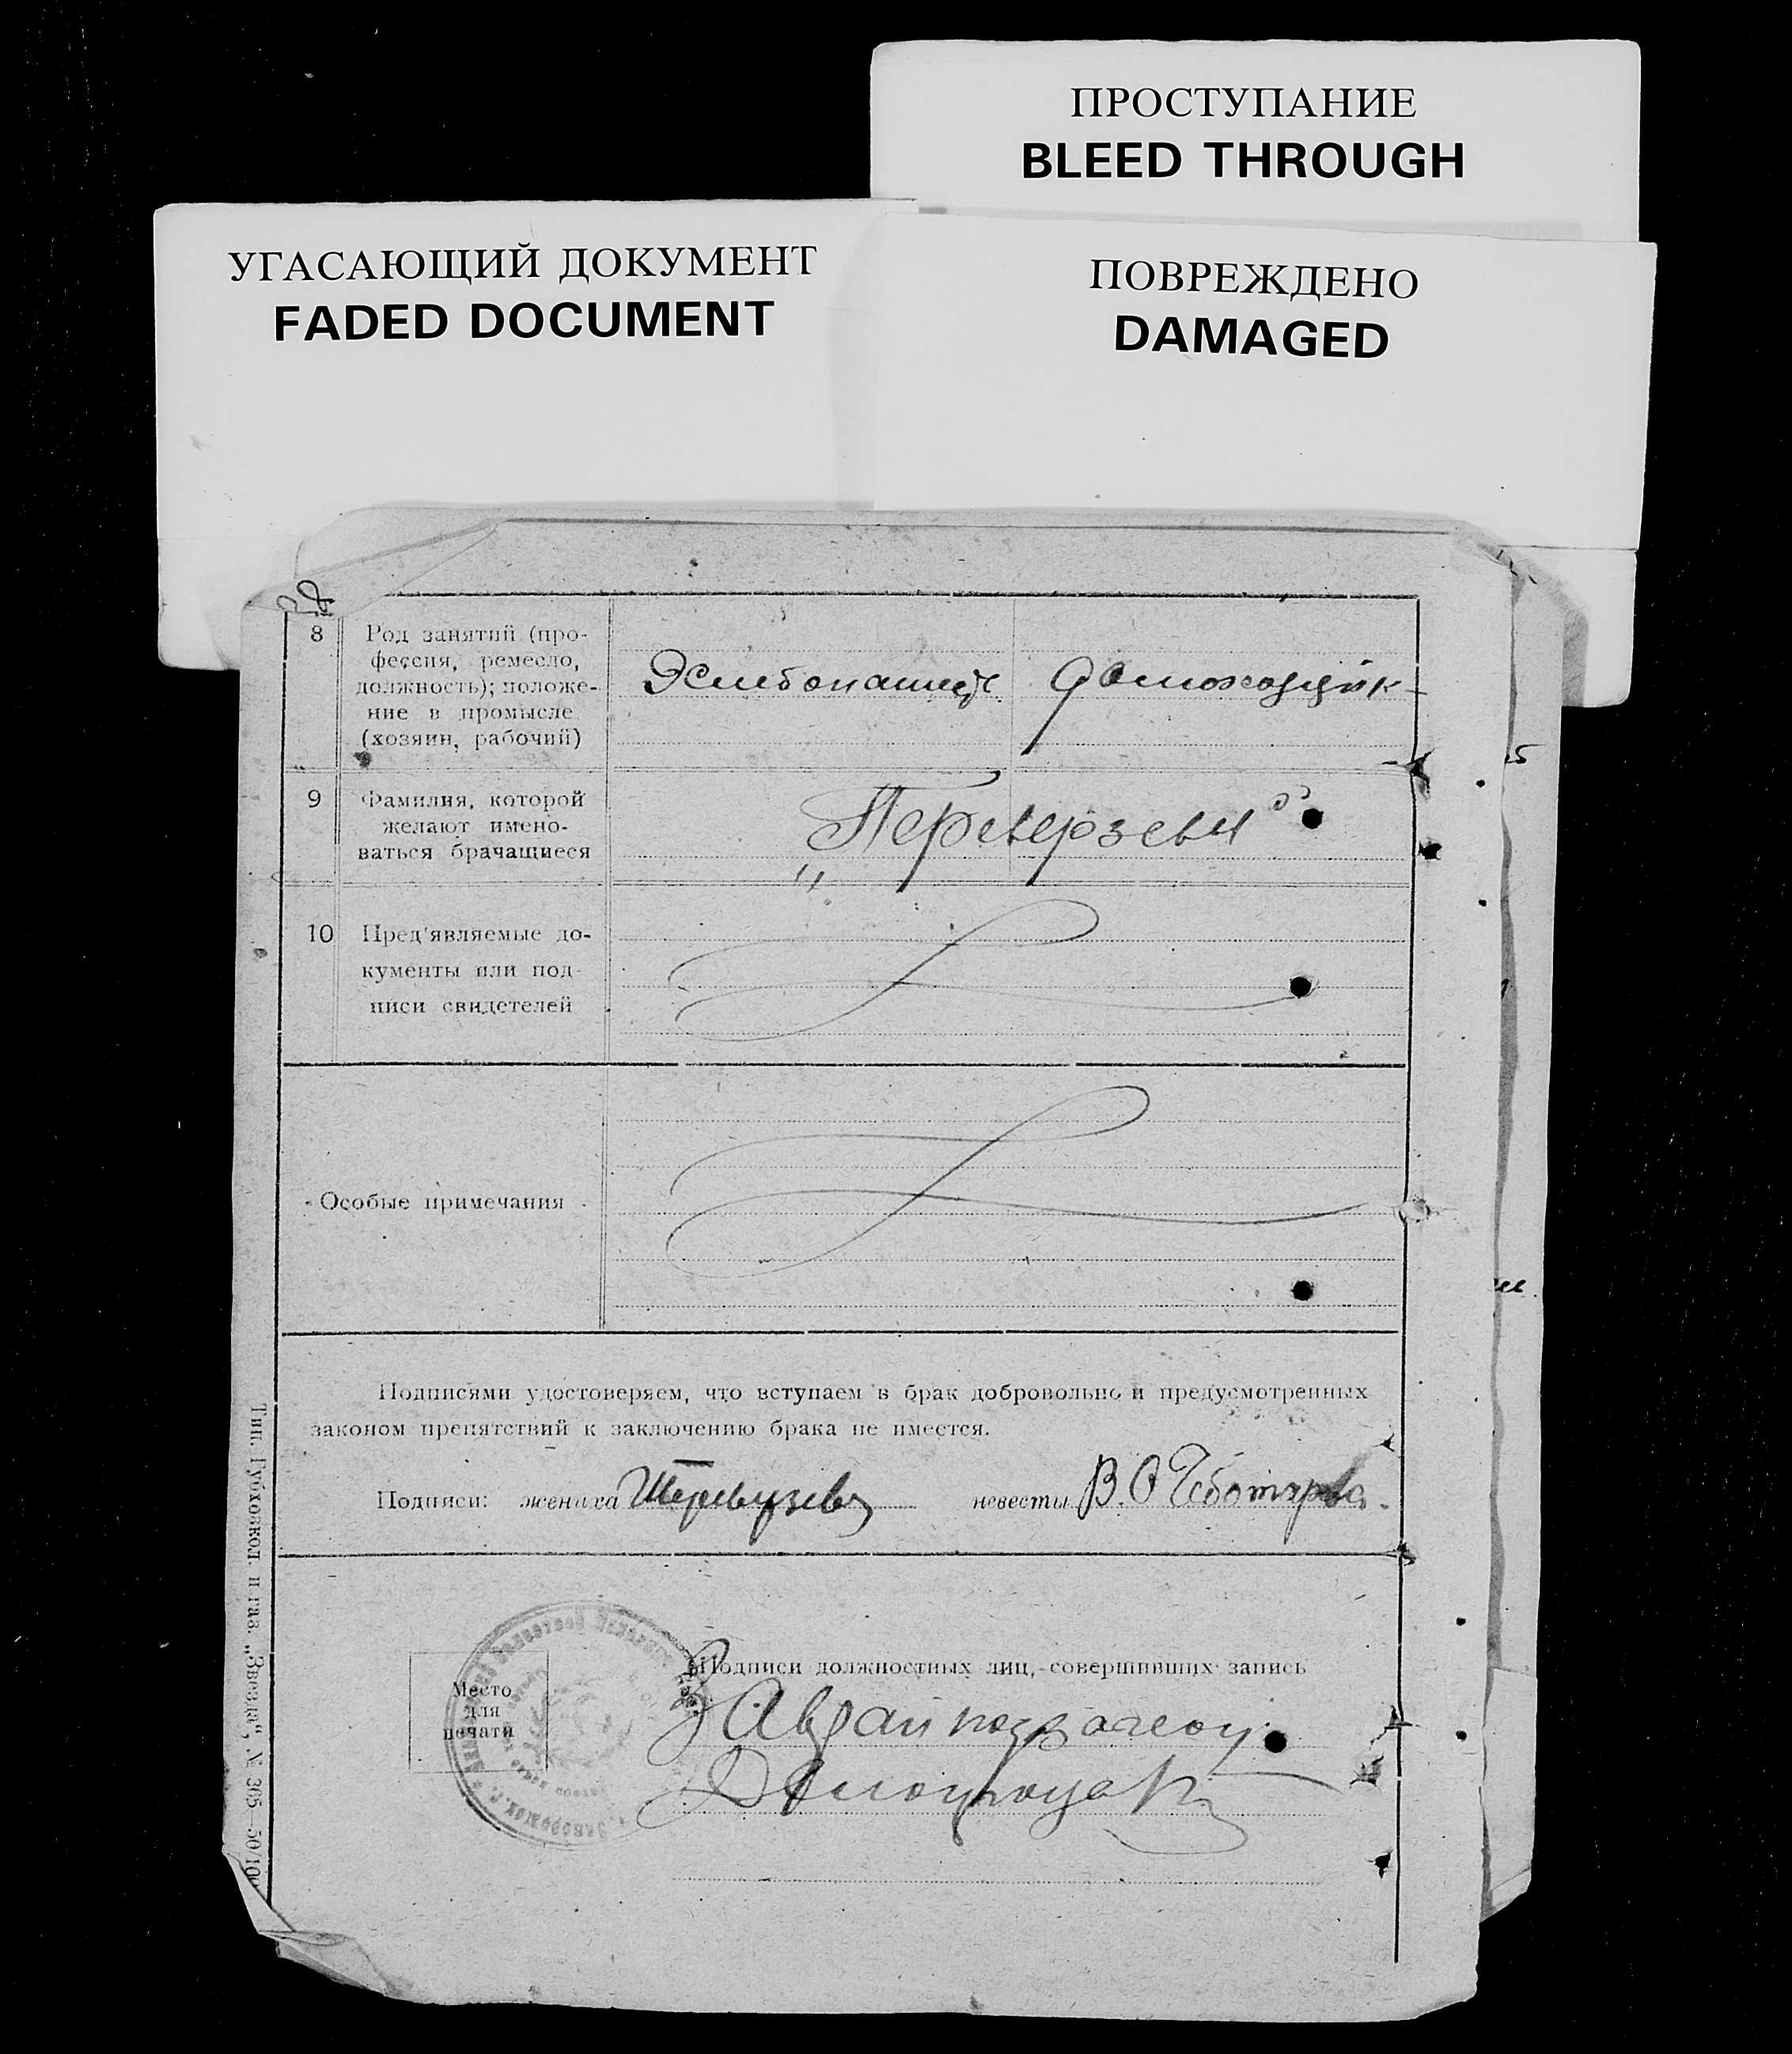 ПРОСТУПАНИЕ
BLEED THROUGH
УГАСАЮЩИЙ ДОКУМЕНТ
FADED DOCUMENT
ПОВРЕЖДЕНО
DAMAGED
8
Род занятий (про-
фессия, ремесло,
должность); положе-
ние в промысле
(хозяин, рабочий)
9
Фамилия, которой
желают имено-
ваться брачащиеся
„Переверзевы"
10
Пред'являемые до-
кументы или под-
писи свидетелей
Особые примечания
Подписями удостоверяем, что вступаем в брак добровольно и предусмотренных
законом препятствий к заключению брака не имеется.
Подписи: жениха невесты В. Чеботарева
Место
для
печати
Подписи должностных лиц, совершивших запись
Тип. Губхозкол. и газ. „Звезда", № 305 -50/100